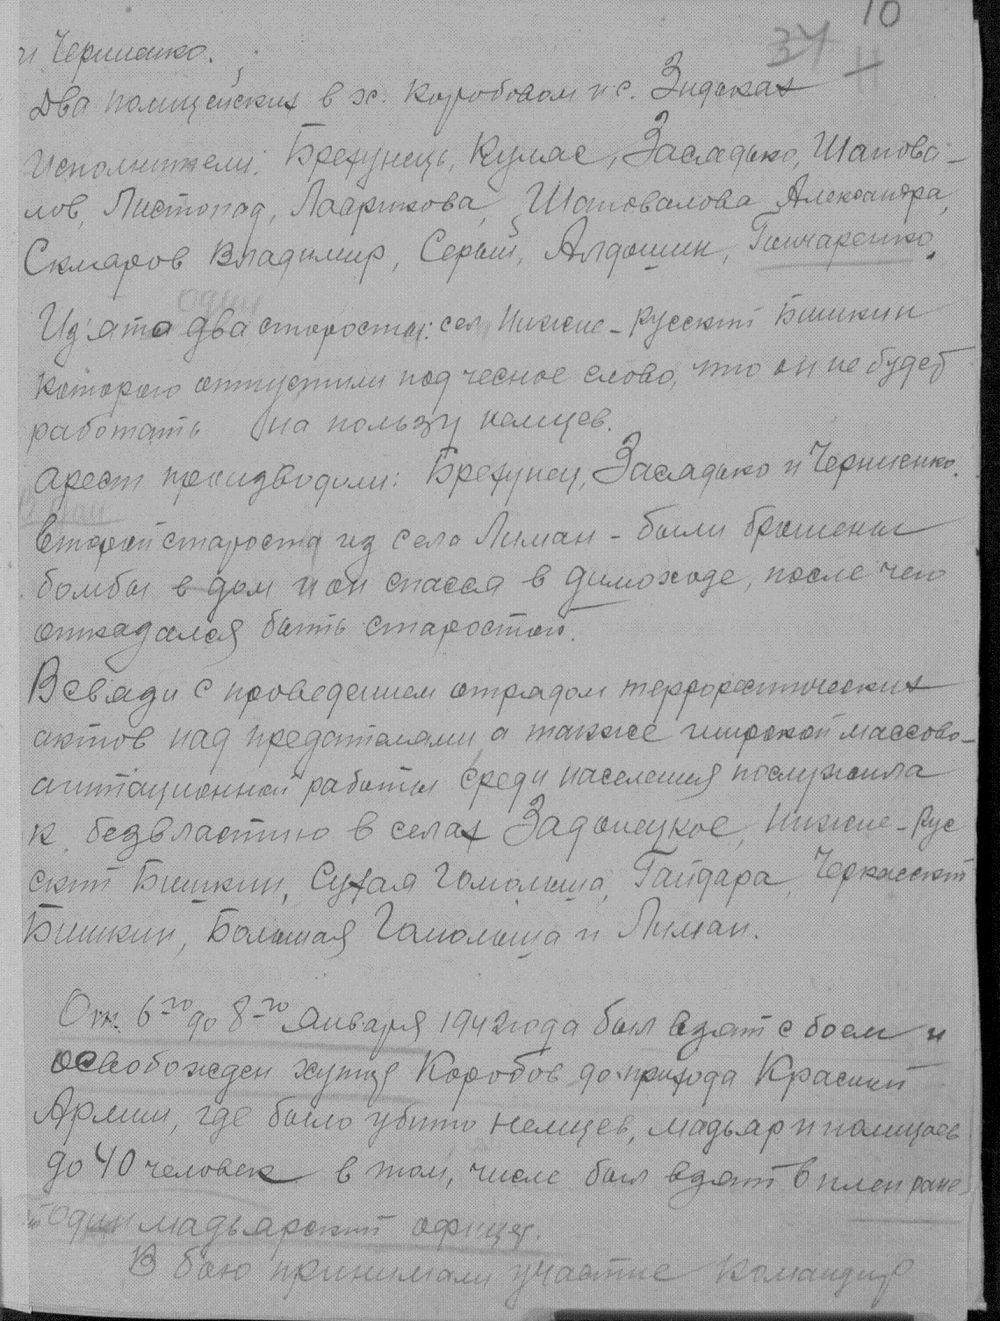 10
34
11
и Черниенко.
Два полицейских в х. Коробовом и с. Зидьках
Исполнители: Брехунець, Кулае, Засядько, Шапова-
лов, Листопад, Лавртнова, Шаповалова Александра,
Скляров Владимир, Серый, Алдошин, Гончаренко.
один
Из'ято два старосты: сел Нижне-русский Бишкин
которого отпустили под чесное слово, что он не будет
работать на пользу немцев.
арест производили: Брехунец, Засядько и Черниенко.
Второй староста из села Лиман - были брошены
бомбы в дом и он спасся в димоходе, после чего
отказался быть старостой.
В связи с проведением отрядом террористических
актов над предателями, а также широкой массово-
агитационной работы среди населения послужила
к безвластию в селах Задонецкое, Нижне-Рус
ский Бишкин, Сухая Гомольша, Гайдара, Черкасский
Бишкин, Большая Гомольша и Лиман.
От 6-го до 8-го января 1942 года был взят с боем и
освобожден хутор Коробов до прихода Красной
Армии, где было убито немцев, мадьяр и полицаев
до 40 человек в том, числе был взят в плен ране
один мадьярский офицер.
В бою принимали участие командир